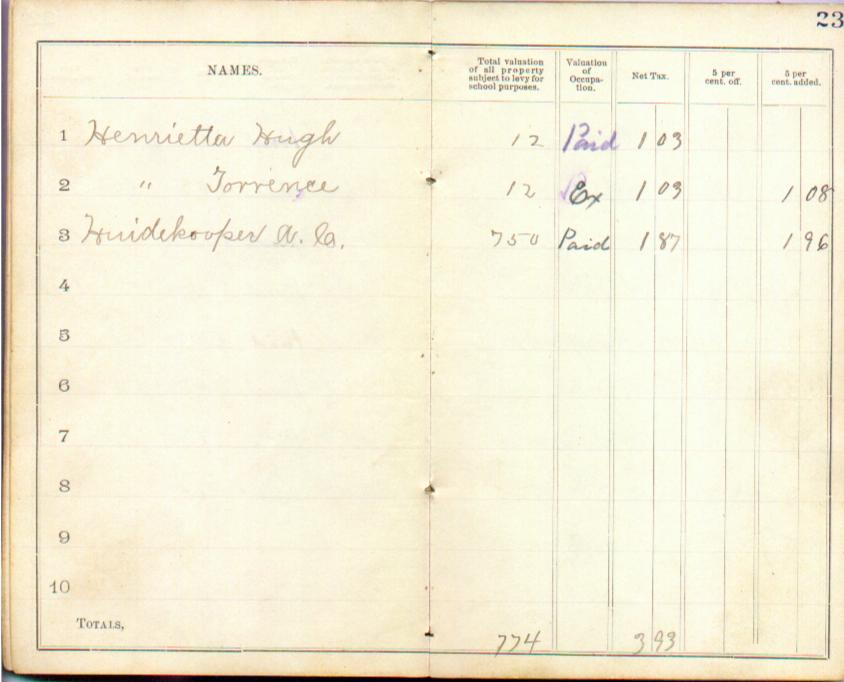 23
NAMES. Total valuation of all property subject to levy for school purposes. Valuation of Occupa-tion. Net Tax. 5 per cent. off. 5 per cent. added.
1 Henrietta Hugh 12 Paid 1 03
2 " Torrence 12 Ex 1 03 1 08
3 Huidekooper A. C. 750 Paid 1 87 1 96
4
5
6
7
8
9
10
TOTALS, 774 3 93